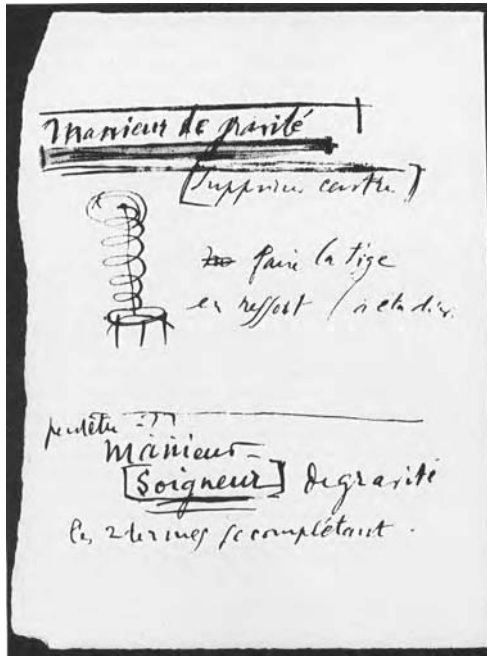 Manieur de gravité
[Supprimer centre]
faire la tige
en ressort (à étudier.
peutêtre :
Manieur-
[Soigneur] de gravité
les 2 termes se complétant.